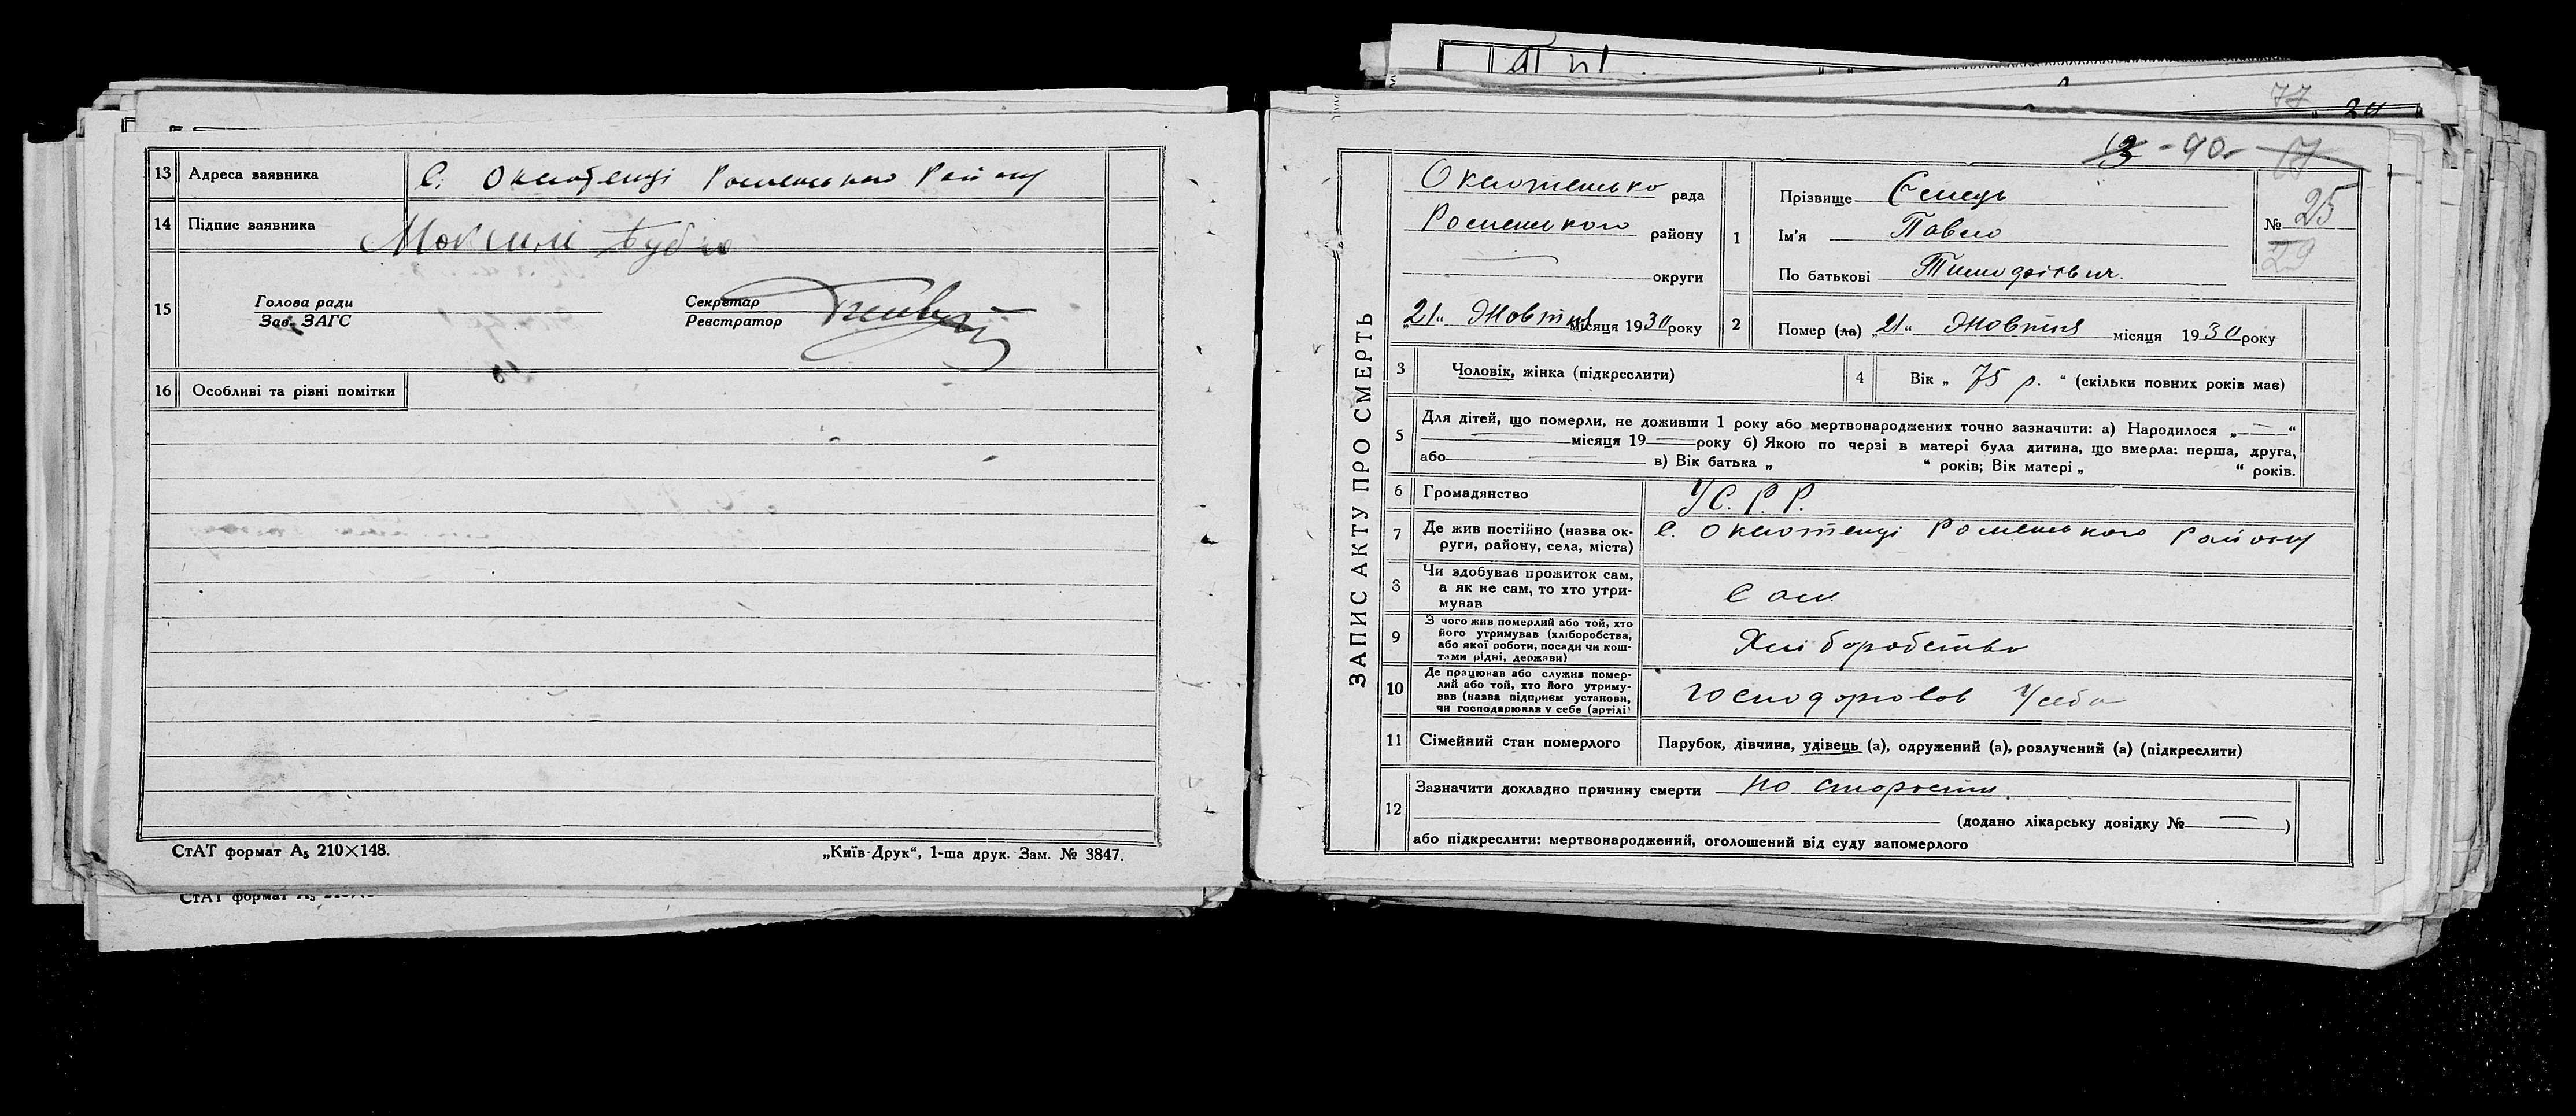 13 Адреса заявника С. Оксютенці Роменського Району
14 Підпис заявника Максим
15 Голова ради
Зав. ЗАГС
Секретар
Реєстратор
16 Особливі та різні помітки
СтАТ формат А5 210×148.
„Київ-Друк“, 1-ша друк. Зам. № 3847.
СтАТ формат А5
77
24
13 - 90 - 17
ЗАПИС АКТУ ПРО СМЕРТЬ
Оксютенсько рада
Роменського району
— округи
„21“ Жовтня місяця 1930 року
1 Прізвище Ємець
Ім'я Павло
По батькові Тимофієвич.
№ 25
29
2 Помер (ла) „21“ Жовтня місяця 1930 року
3 Чоловік, жінка (підкреслити)
4 Вік „ 75 р. “ (скільки повних років має)
5 Для дітей, що померли, не доживши 1 року або мертвонароджених точно зазначити: а) Народилося „—“
— місяця 19 — року б) Якою по черзі в матері була дитина, що вмерла: перша, друга,
або — в) Вік батька „ “ років; Вік матері „ “ років.
6 Громадянство УС.Р.Р.
7 Де жив постійно (назва ок-
руги, району, села, міста) С. Оксютенці Роменського Району
8 Чи здобував прожиток сам,
а як не сам, то хто утри-
мував Сам
9 З чого жив померлий або той, хто
його утримував (хліборобства,
або якої роботи, посади чи кош-
тами рідні, держави) Хліборобства
10 Де працював або служив помер-
лий або той, хто його утриму-
вав (назва підприєм установи,
чи господарював у себе (артілі) Господарював У себе
11 Сімейний стан померлого Парубок, дівчина, удівець (а), одружений (а), розлучений (а) (підкреслити)
12 Зазначити докладно причину смерти по старости.
(додано лікарську довідку № — )
або підкреслити: мертвонароджений, оголошений від суду запомерлого